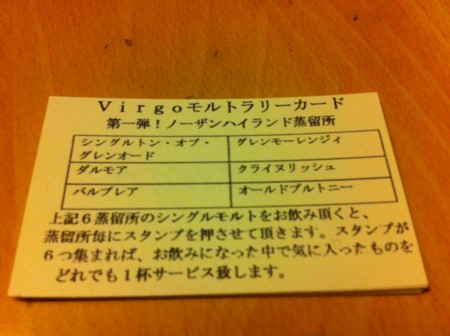 Virgoモルトラリーカード
第一弾！ノーザンハイランド蒸留所
シングルトン・オブ・グレンオード
グレンモーレンジィ
ダルモア
クライヌリッシュ
バルブレア
オールドプルトニー
上記６蒸留所のシングルモルトをお飲み頂くと、
蒸留所毎にスタンプを押させて頂きます。スタンプが
６つ集まれば、お飲みになった中で気に入ったものを
どれでも１杯サービス致します。